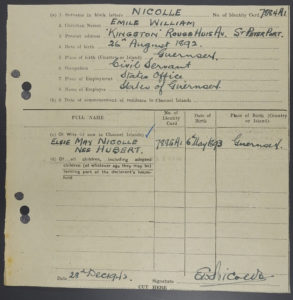 (1) Surname in block letters NICOLLE No of Identity Card 7884A1.
2. Christian Names EMILE WILLIAM
3. Present address 'KINGSTON' ROUGE HUIS AV. ST PETER PORT.
4. Date of birth 26th August 1892.
5. Place of birth (Country or Island) Guernsey
Occupation Civil Servant
Place of Employment States Office
Name of Employer States of Guernsey.
(b) Date of commencement of residence in Channel Islands
FULL NAME
No of Identity Card
Date of Birth
Place of Birth (Country or Island)
(c) Of Wife (if now in Channel Islands)
ELSIE MAY NICOLLE 6th May 1893 Guernsey.
NEE HUBERT.
(d) Of all children, including adopted children (of whatever age they may be) forming part of the declarant's household
Date 29th Dec
Signature
CUT HERE